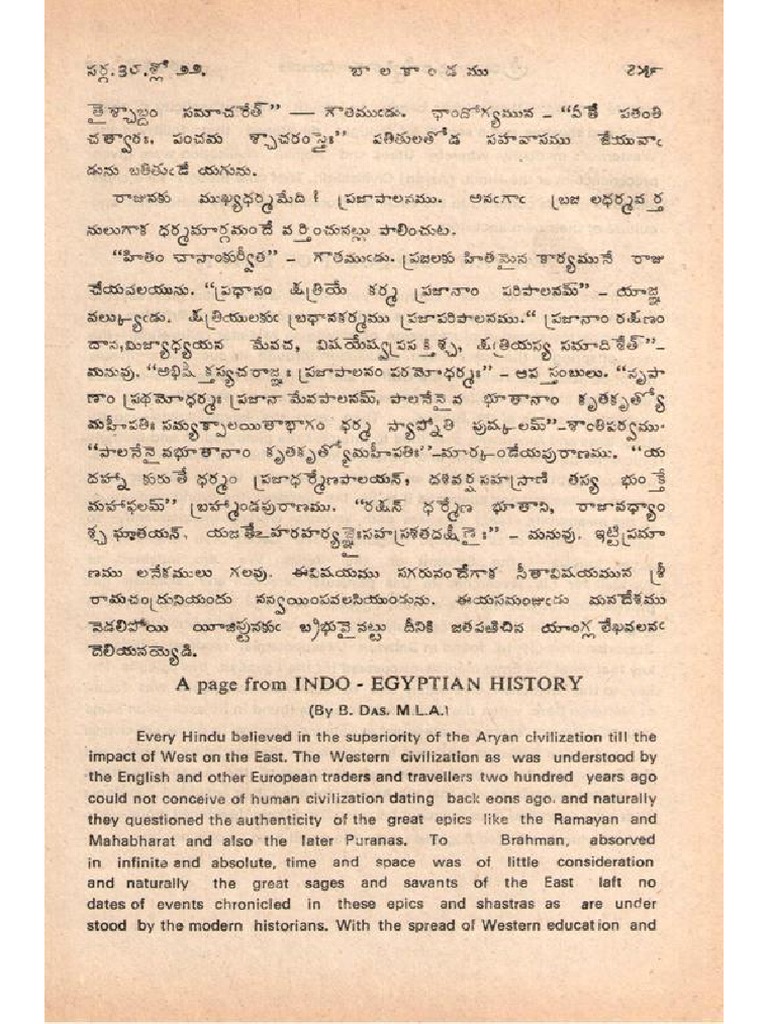 సర్గ.38.శ్లో ౨౨. బాలకాండము ౭౫౯
తైశ్చాబ్దం సమాచరేత్” — గౌతముఁడు. ఛాందోగ్యమున – “ఏతే పతంతి
చత్వారః. పంచమ శ్చాచరంస్తైః” పతితులతోడ సహవాసము చేయువాఁ
డును బతితుఁడే యగును.
రాజునకు ముఖ్యధర్మమేది ? ప్రజాపాలనము. అనఁగాఁ బ్రజ లధర్మవర్త
నులుగాక ధర్మమార్గమందే వర్తించునట్లు పాలించుట.
“హితం చాసాంకుర్వీత” – గౌతముఁడు. ప్రజలకు హితమైన కార్యమునే రాజు
చేయవలయును. “ప్రధానం క్షత్రియే కర్మ ప్రజానాం పరిపాలనమ్” – యాజ్ఞ
వల్క్యుఁడు. క్షత్రియులకుఁ బ్రధానకర్మము ప్రజాపరిపాలనము.“ ప్రజానాం రక్షణం
దాన,మిజ్యాధ్యయన మేవచ, విషయేష్వప్రసక్తిశ్చ, క్షత్రియస్య సమాదిశేత్”–
మనువు. “అభిషిక్తస్యచరాజ్ఞః ప్రజాపాలనం పరమోధర్మః” – ఆపస్తంబులు. “నృపా
ణాం ప్రథమోధర్మః ప్రజానా మేవపాలనమ్, పాలనేనైవ భూతానాం కృతకృత్యో
మహీపతిః సమ్యక్పాలయితాభాగం ధర్మ స్యాప్నోతి పుష్కలమ్”–శాంతిపర్వము.
“పాలనేనైవభూతానాం కృతకృత్యోమహీపతిః”–మార్కండేయపురాణము. “య
దహ్నా కురుతే ధర్మం ప్రజాధర్మేణపాలయన్, దశవర్షసహస్రాణి తస్య భుంక్తే
మహాఫలమ్” బ్రహ్మాండపురాణము. “రక్షన్ ధర్మేణ భూతాని, రాజావధ్యాం
శ్చ ఘాతయన్. యజతేఽహరహర్యజ్ఞైఃసహస్రశతదక్షిణైః” – మనువు. ఇట్టిప్రమా
ణము లనేకములు గలవు. ఈవిషయము సగరునందేగాక సీతావిషయమున శ్రీ
రామచంద్రునియందు నన్వయింపవలసియుండును. ఈయసమంజుఁడు మనదేశము
నెడలిపోయి యీజిప్టునకుఁ బ్రభువైనట్టు దీనికి జతపఱిచిన యాంగ్ల లేఖవలనఁ
దెలియనయ్యెడి.
A page from INDO - EGYPTIAN HISTORY
(By B. DAS. M.L.A.)
Every Hindu believed in the superiority of the Aryan civilization till the
impact of West on the East. The Western civilization as was understood by
the English and other European traders and travellers two hundred years ago
could not conceive of human civilization dating back eons ago. and naturally
they questioned the authenticity of the great epics like the Ramayan and
Mahabharat and also the later Puranas. To Brahman, absorved
in infinite and absolute, time and space was of little consideration
and naturally the great sages and savants of the East laft no
dates of events chronicled in these epics and shastras as are under
stood by the modern historians. With the spread of Western education and